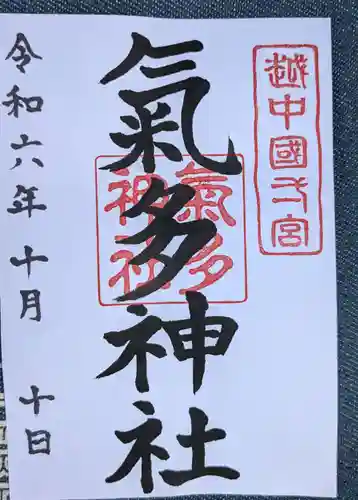 越中國一宮
氣多神社
氣多神社
令和六年十月十日